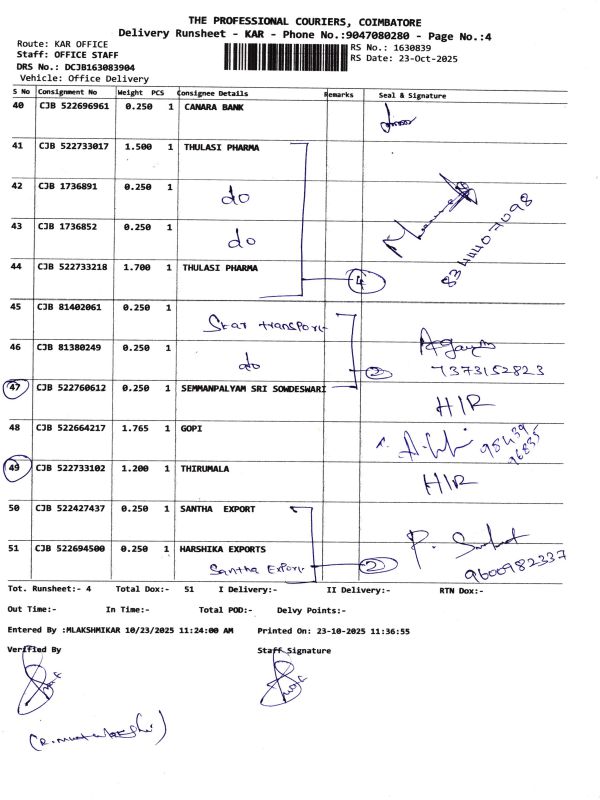 THE PROFESSIONAL COURIERS, COIMBATORE
Delivery Runsheet - KAR - Phone No.:9047080280 - Page No.:4
Route: KAR OFFICE
RS No.: 1630839
Staff: OFFICE STAFF
RS Date: 23-Oct-2025
DRS No.: DCJB163083904
Vehicle: Office Delivery
S No Consignment No Weight PCS Consignee Details Remarks Seal & Signature
40 CJB 522696961 0.250 1 CANARA BANK
41 CJB 522733017 1.500 1 THULASI PHARMA
42 CJB 1736891 0.250 1 do
43 CJB 1736852 0.250 1 do
8344407098
44 CJB 522733218 1.700 1 THULASI PHARMA 4
45 CJB 81402061 0.250 1 Star transport
46 CJB 81380249 0.250 1 do 2 7373152823
47 CJB 522760612 0.250 1 SEMMANPALYAM SRI SOWDESWARI H/R
48 CJB 522664217 1.765 1 GOPI 98439 76835
49 CJB 522733102 1.200 1 THIRUMALA H/R
50 CJB 522427437 0.250 1 SANTHA EXPORT
51 CJB 522694500 0.250 1 HARSHIKA EXPORTS
Santha Export 2 9600982337
Tot. Runsheet:- 4 Total Dox:- 51 I Delivery:- II Delivery:- RTN Dox:-
Out Time:- In Time:- Total POD:- Delvy Points:-
Entered By :MLAKSHMIKAR 10/23/2025 11:24:00 AM Printed On: 23-10-2025 11:36:55
Verified By Staff Signature